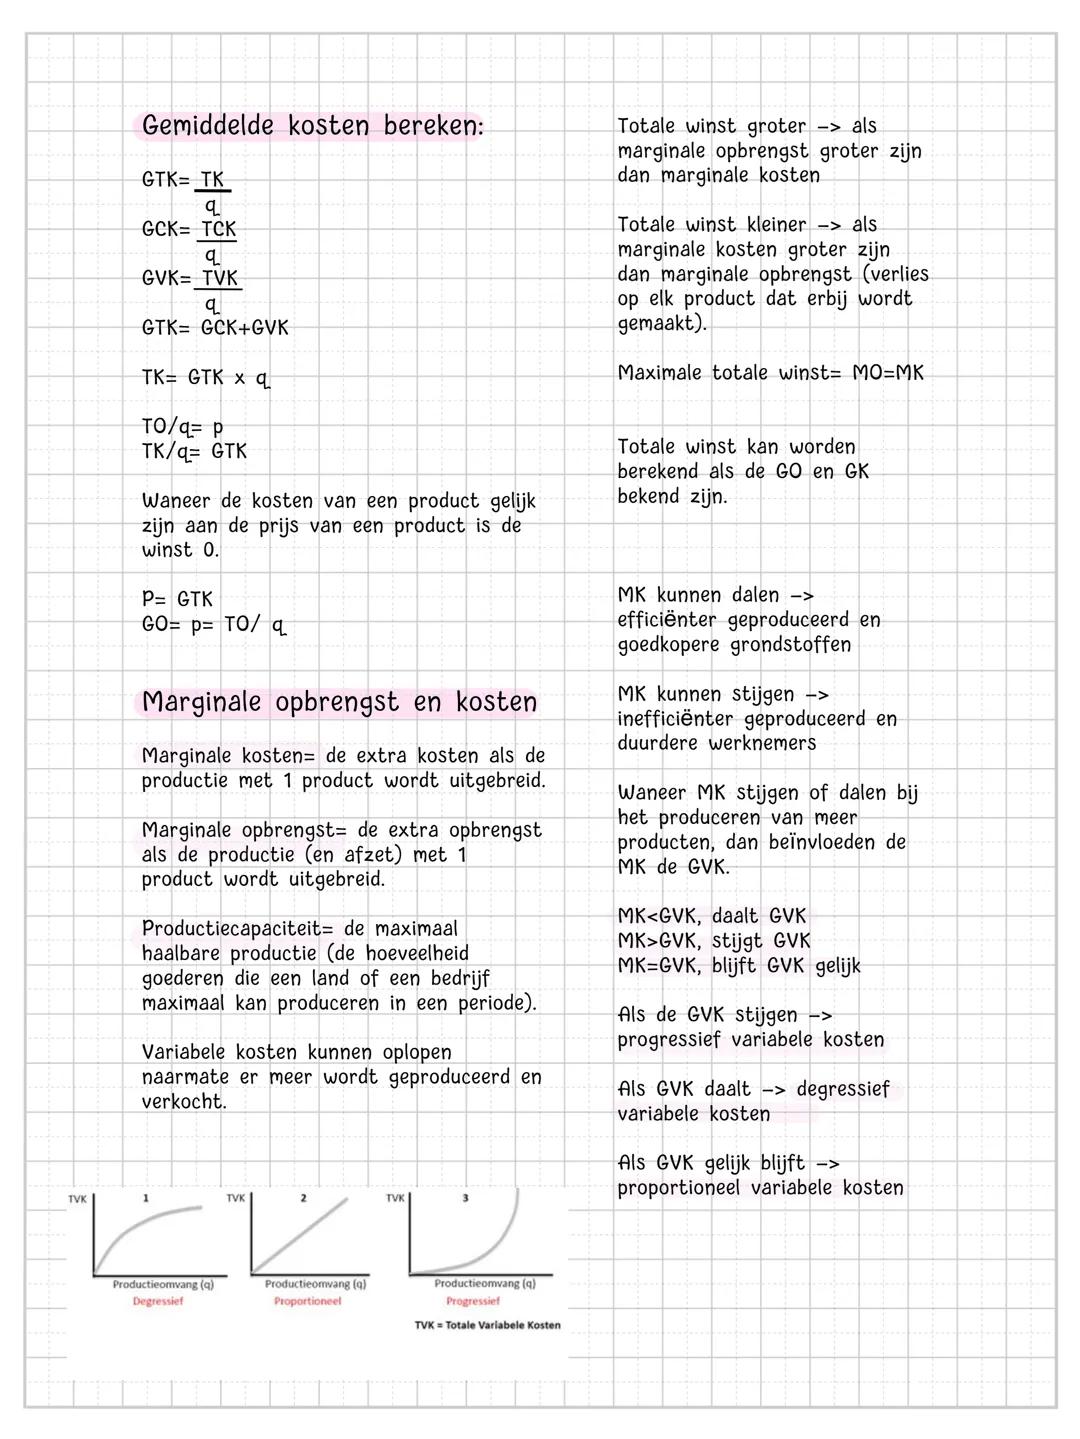 Gemiddelde kosten bereken:
GTK= TK
q
GCK= TCK
q
GVK= TVK
q
GTK= GCK+GVK
TK= GTK x q
TO/q= p
TK/q= GTK
Waneer de kosten van een product gelijk
zijn aan de prijs van een product is de
winst 0.
P= GTK
GO= p= TO/ q
Marginale opbrengst en kosten
Marginale kosten= de extra kosten als de
productie met 1 product wordt uitgebreid.
Marginale opbrengst= de extra opbrengst
als de productie (en afzet) met 1
product wordt uitgebreid.
Productiecapaciteit= de maximaal
haalbare productie (de hoeveelheid
goederen die een land of een bedrijf
maximaal kan produceren in een periode).
Variabele kosten kunnen oplopen
naarmate er meer wordt geproduceerd en
verkocht.
TVK 1
Productieomvang (q)
Degressief
TVK 2
Productieomvang (q)
Proportioneel
TVK 3
Productieomvang (q)
Progressief
TVK = Totale Variabele Kosten
Totale winst groter -> als
marginale opbrengst groter zijn
dan marginale kosten
Totale winst kleiner -> als
marginale kosten groter zijn
dan marginale opbrengst (verlies
op elk product dat erbij wordt
gemaakt).
Maximale totale winst= MO=MK
Totale winst kan worden
berekend als de GO en GK
bekend zijn.
MK kunnen dalen ->
efficiënter geproduceerd en
goedkopere grondstoffen
MK kunnen stijgen ->
inefficiënter geproduceerd en
duurdere werknemers
Waneer MK stijgen of dalen bij
het produceren van meer
producten, dan beïnvloeden de
MK de GVK.
MK<GVK, daalt GVK
MK>GVK, stijgt GVK
MK=GVK, blijft GVK gelijk
Als de GVK stijgen ->
progressief variabele kosten
Als GVK daalt -> degressief
variabele kosten
Als GVK gelijk blijft ->
proportioneel variabele kosten